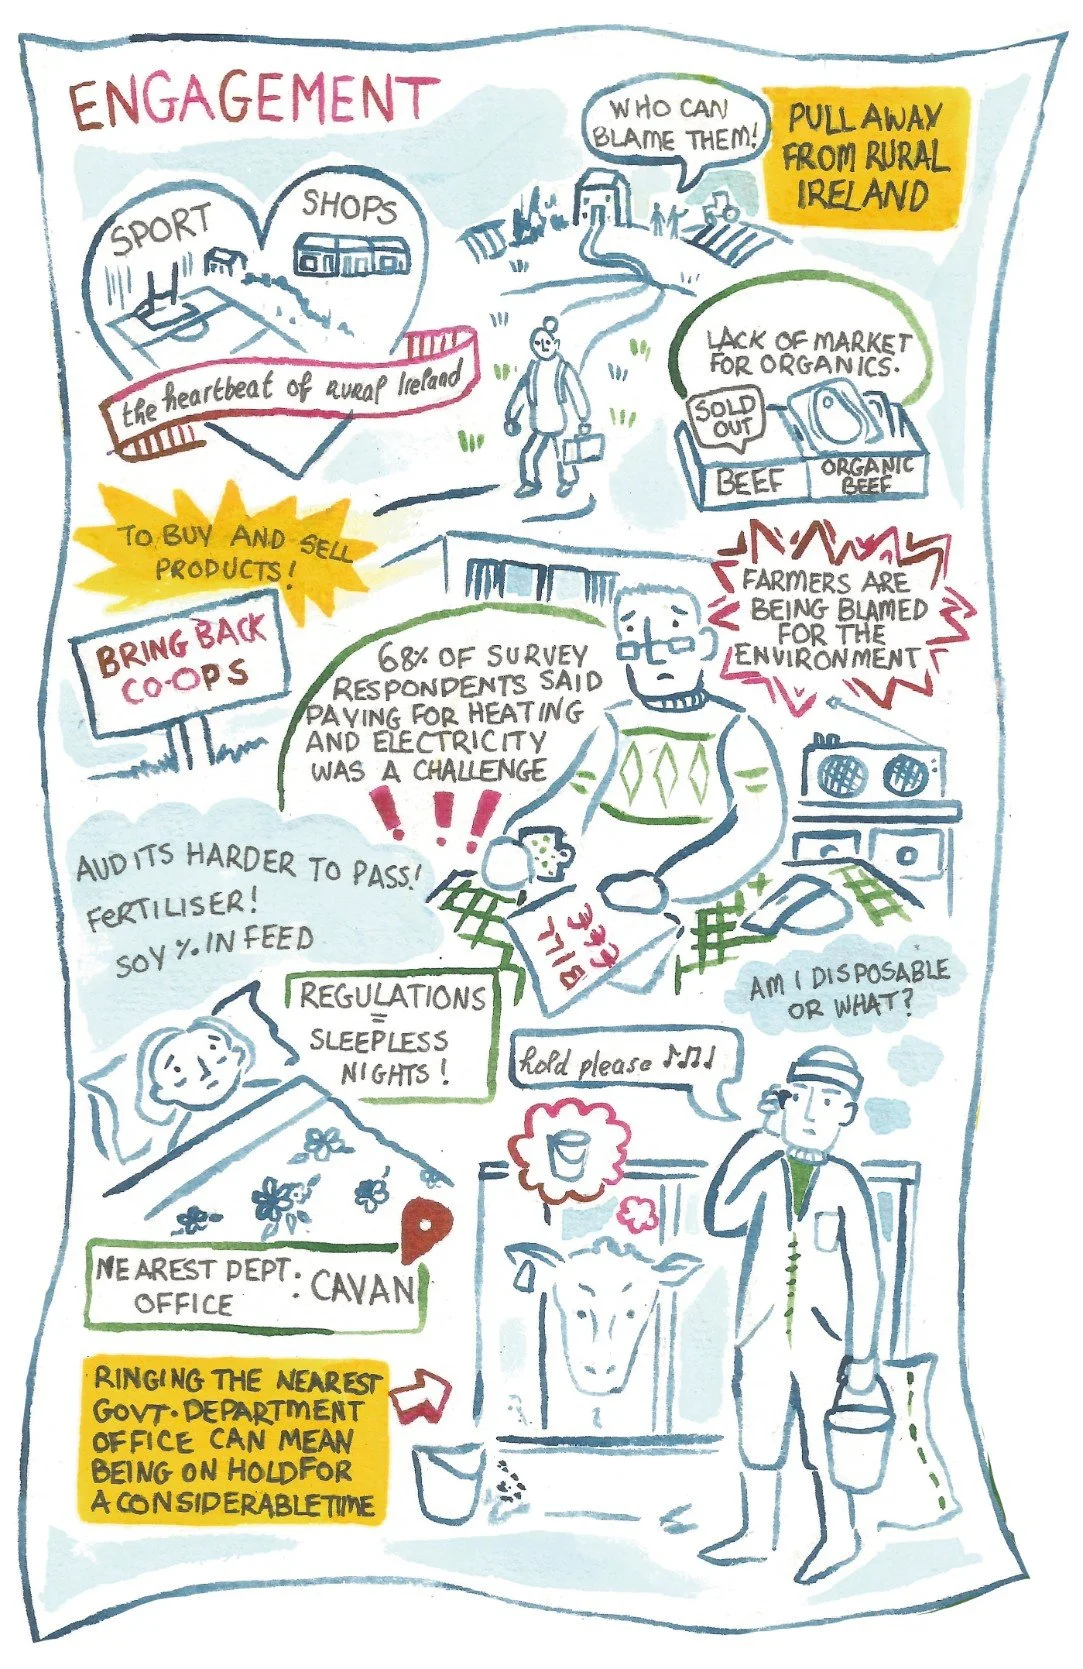 ENGAGEMENT
WHO CAN
BLAME THEM!
PULL AWAY
FROM RURAL
IRELAND
SPORT
SHOPS
the heartbeat of rural Ireland
LACK OF MARKET
FOR ORGANICS.
SOLD
OUT
BEEF
ORGANIC
BEEF
TO BUY AND SELL
PRODUCTS!
BRING BACK
CO-OPS
FARMERS ARE
BEING BLAMED
FOR THE
ENVIRONMENT
68% OF SURVEY
RESPONDENTS SAID
PAYING FOR HEATING
AND ELECTRICITY
WAS A CHALLENGE
!!!
BILL
€€€
AUDITS HARDER TO PASS!
FERTILISER!
SOY % IN FEED
REGULATIONS
=
SLEEPLESS
NIGHTS!
AM I DISPOSABLE
OR WHAT?
hold please ♪♫♩
NEAREST DEPT:
OFFICE
CAVAN
RINGING THE NEAREST
GOVT. DEPARTMENT
OFFICE CAN MEAN
BEING ON HOLD FOR
A CONSIDERABLE TIME